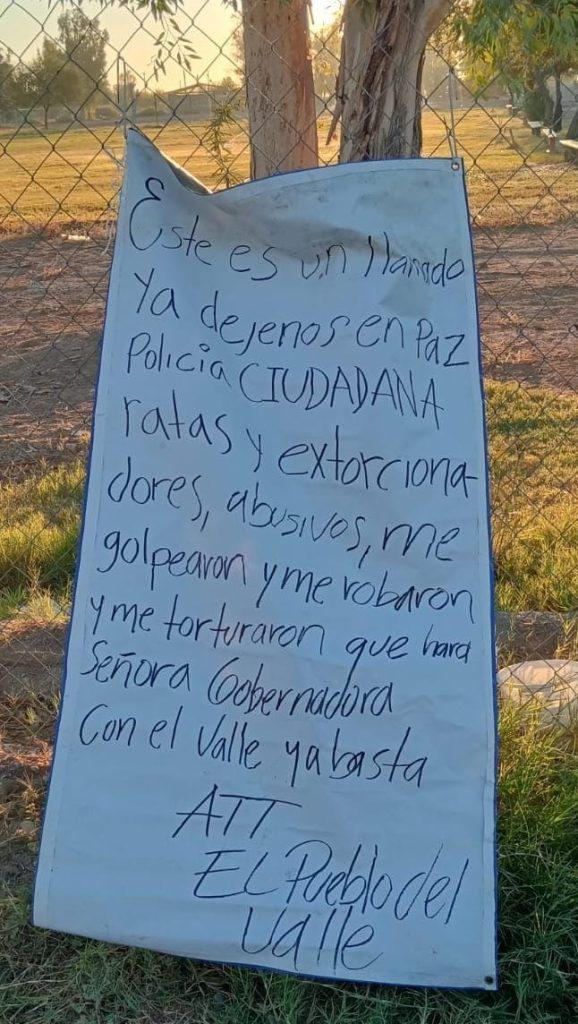 Este es un llamado
Ya dejenos en Paz
Policia CIUDADANA
ratas y extorciona-
dores, abusivos, me
golpearon y me robaron
y me torturaron que hara
Señora Gobernadora
Con el Valle ya basta
ATT
EL Pueblo del
Valle